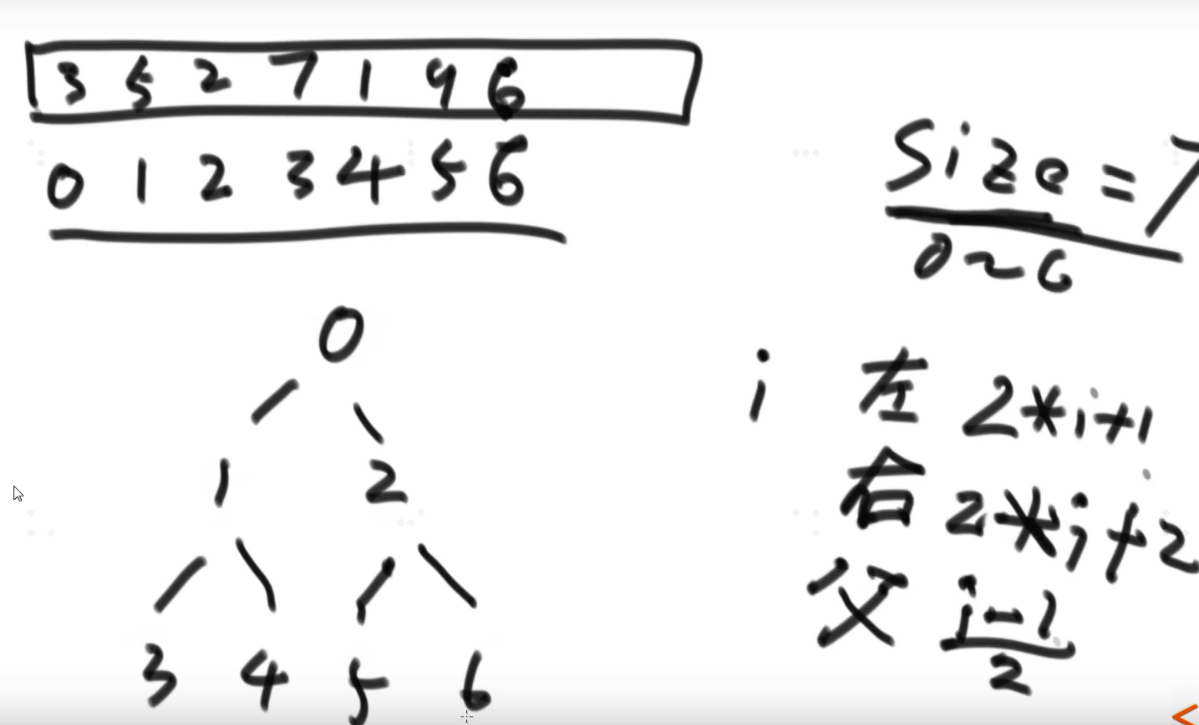 3 5 2 7 1 9 6
0 1 2 3 4 5 6
size = 7
0~6
0
1 2
3 4 5 6
i 左 2*i+1
右 2*i+2
父 i-1
2